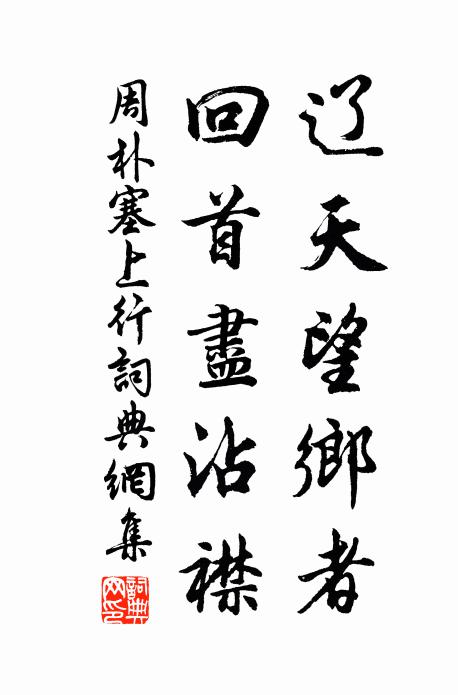 辽天望鄉者
回首盡沾襟
周朴塞上行詞典網集
詞典网印